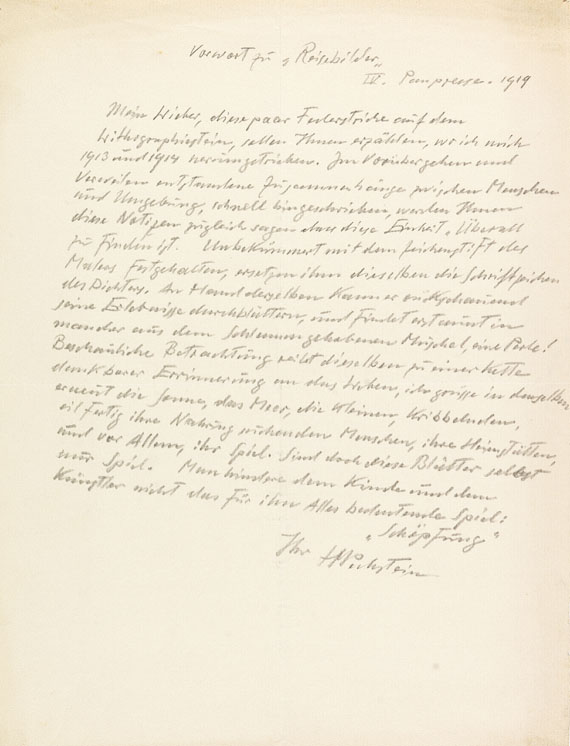 Vorwort zu „Reisebilder„
IV. Panpresse. 1919
Mein Lieber, diese paar Federstriche auf dem
Lithographiestein, sollen Ihnen erzählen, wo ich mich
1913 und 1914 herumgetrieben. Im Vorübergehen und
Verweilen entstandene Zusammenhänge zwischen Menschen
und Umgebung, schnell hingeschrieben, werden Ihnen
diese Notizen zugleich sagen dass diese Einheit, Überall
zu finden ist. Unbekümmert mit dem Zeichenstift des
Malers Festgehalten, ersetzen ihm dieselben die Schriftzeichen
des Dichters. An Hand derselben kann er rückschauend
seine Erlebnisse durchblättern, und findet erstaunt in
mancher aus dem Schlamm gehobenen Muschel, eine Perle!
Beschauliche Betrachtung reiht dieselben zu einer Kette
dankbarer Errinnerung an das Leben, ich grüsse in denselben
erneut die Sonne, das Meer, die kleinen, kribbelnden,
eilfertig ihre Nahrung suchenden Menschen, ihre Heimstätten,
und vor Allem, ihr Spiel. Sind doch diese Blätter selbst
nur Spiel. Man hindere dem Kinde und dem
Künstler nicht das für ihn Alles bedeutende Spiel:
„Schöpfung"
Ihr HMPechstein